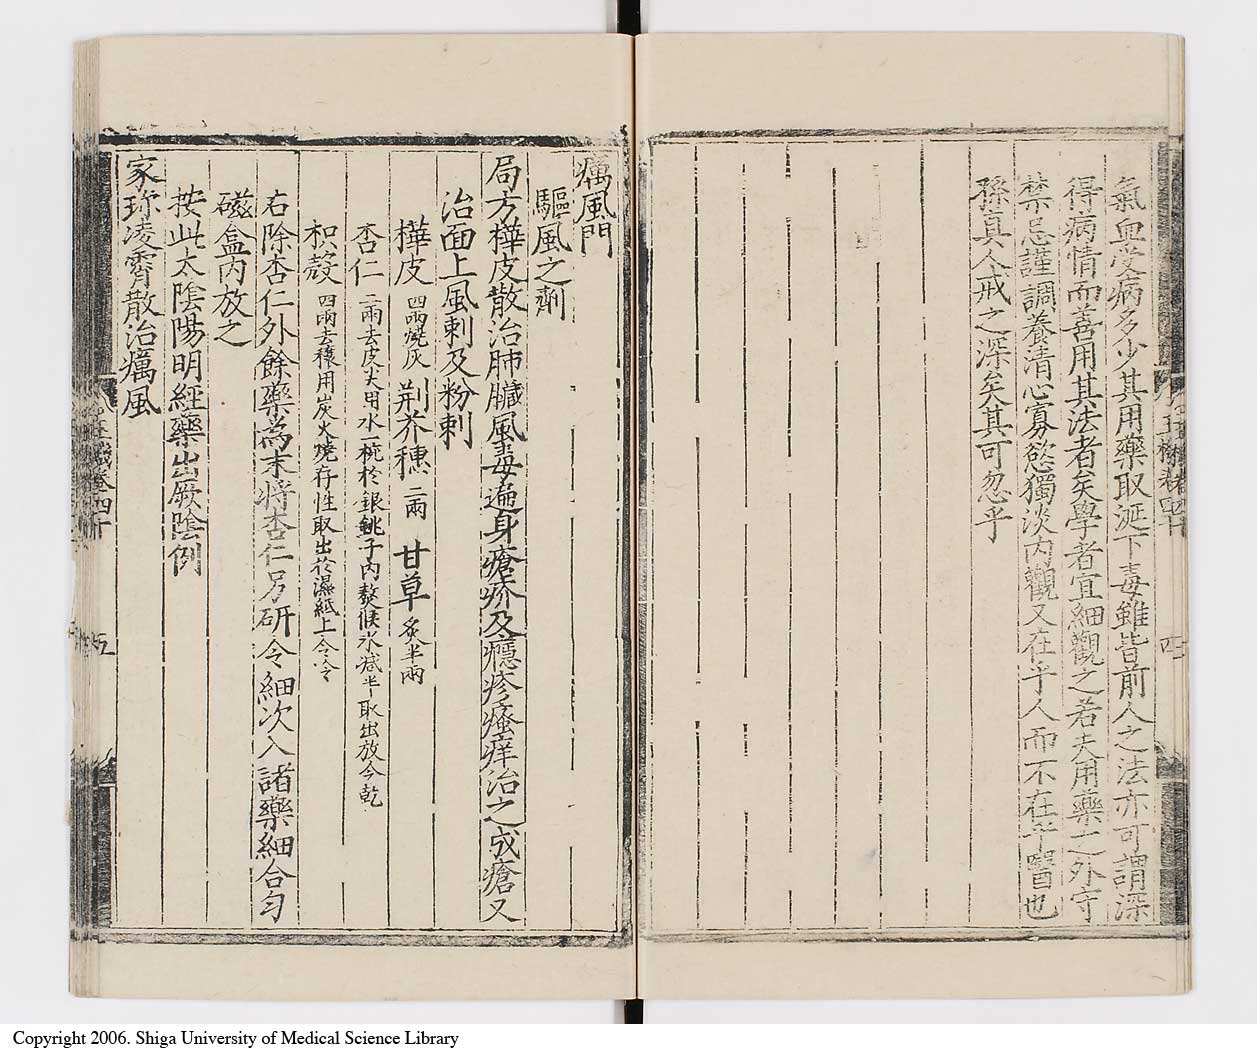 氣血受病多少其用藥取涎下毒雖皆前人之法亦可謂深
得病情而善用其法者矣學者宜細觀之若夫用藥之外守
禁忌謹調養清心寡慾獨淡內觀又在乎人而不在乎醫也
孫真人戒之深矣其可忽乎
癘風門
驅風之劑
局方樺皮散治肺臟風毒遍身瘡疥及癮疹瘙痒治之成瘡又
治面上風刺及粉刺
樺皮 四兩燒灰 荆芥穗 二兩 甘草 炙半兩
杏仁 二兩去皮尖用水一椀於銀銚子內熬候水减半取出放令乾
枳殼 四兩去穰用炭火燒存性取出於濕紙上令冷
右除杏仁外餘藥為末將杏仁另研令細次入諸藥細合勻
磁盒內放之
按此太陰陽明經藥出厥陰例
家珎凌霄散治癘風
五
Copyright 2006. Shiga University of Medical Science Library